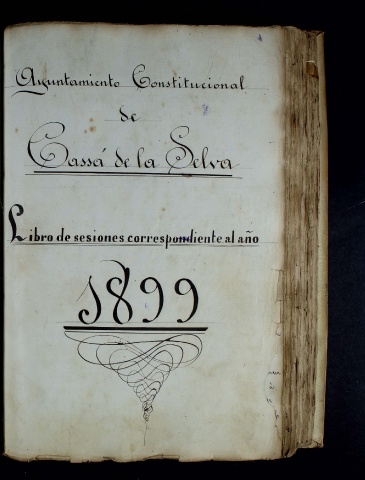 Ayuntamiento Constitucional
de
Cassá de la Selva
Libro de sesiones correspondiente al año
1899